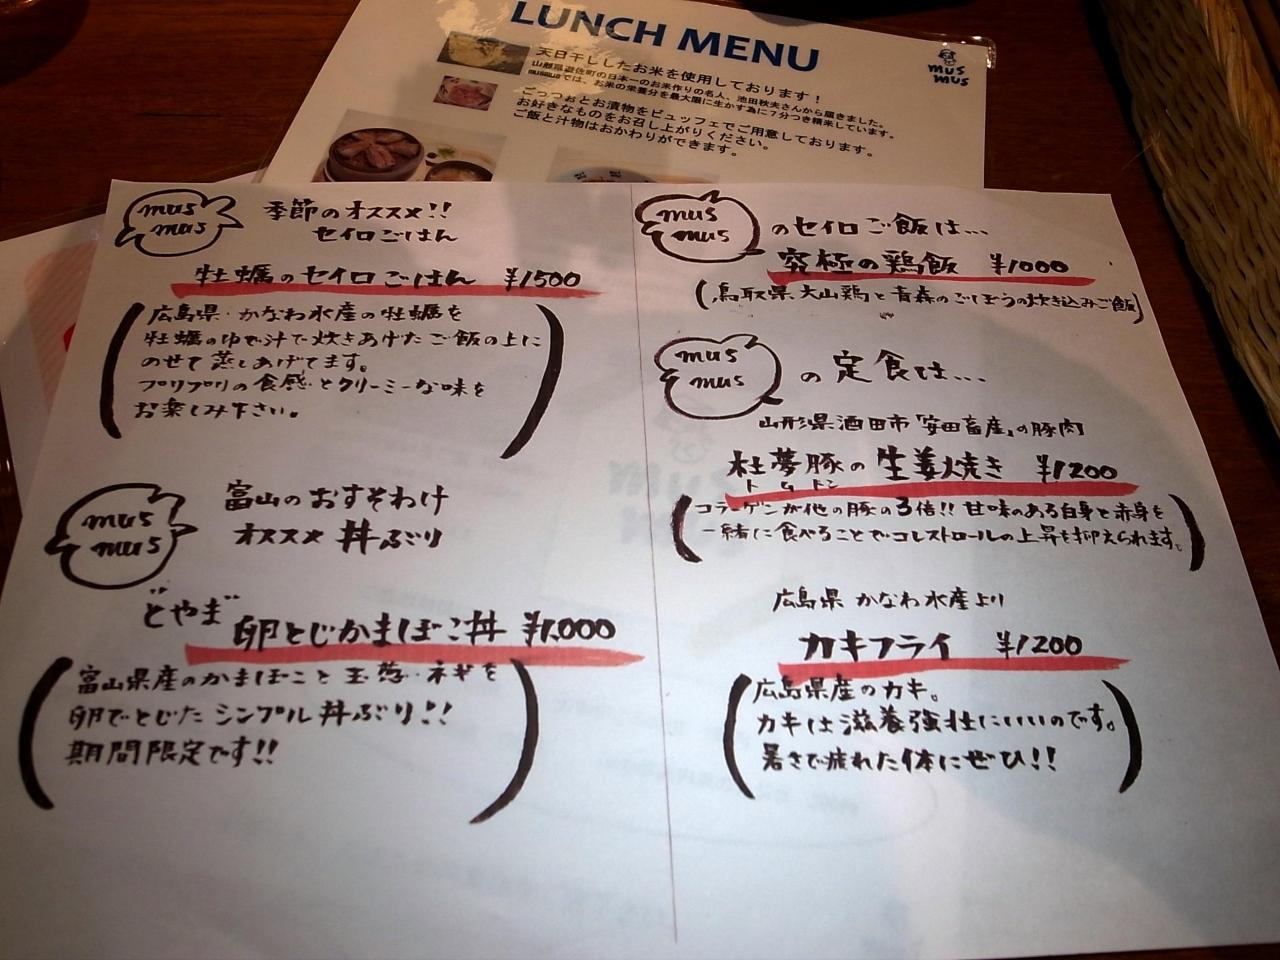 LUNCH MENU
mus
mus
天日干ししたお米を使用しております！
山形県遊佐町の日本一のお米作りの名人、池田秋夫さんから届きました。
musmusでは、お米の栄養分を最大限に生かす為に７分つき精米しています。
ごっつぉとお漬物をビュッフェでご用意しております。
お好きなものをお召し上がりください。
ご飯と汁物はおかわりができます。
mus
mus
季節のオススメ!!
セイロごはん
牡蠣のセイロごはん ¥1500
広島県・かなわ水産の牡蠣を
牡蠣のゆで汁で炊きあげたご飯の上に
のせて蒸しあげてます。
プリプリの食感とクリーミーな味を
お楽しみ下さい。
mus
mus
富山のおすそわけ
オススメ 丼ぶり
どやま゛卵とじかまぼこ丼 ¥1,000
富山県産のかまぼこと玉葱・ネギを
卵でとじたシンプル丼ぶり!!
期間限定です!!
mus
mus
のセイロご飯は…
究極の鶏飯 ¥1000
(鳥取県大山鶏と青森のごぼうの炊き込みご飯)
mus
mus
の定食は…
山形県酒田市「安田畜産」の豚肉
杜夢豚の生姜焼き ¥1200
トムトン
コラーゲンが他の豚の3倍!! 甘味のある白身と赤身を
一緒に食べることでコレストロールの上昇を抑えられます。
広島県 かなわ水産より
カキフライ ¥1200
広島県産のカキ。
カキは滋養強壮にいいのです。
暑さで疲れた体にぜひ!!